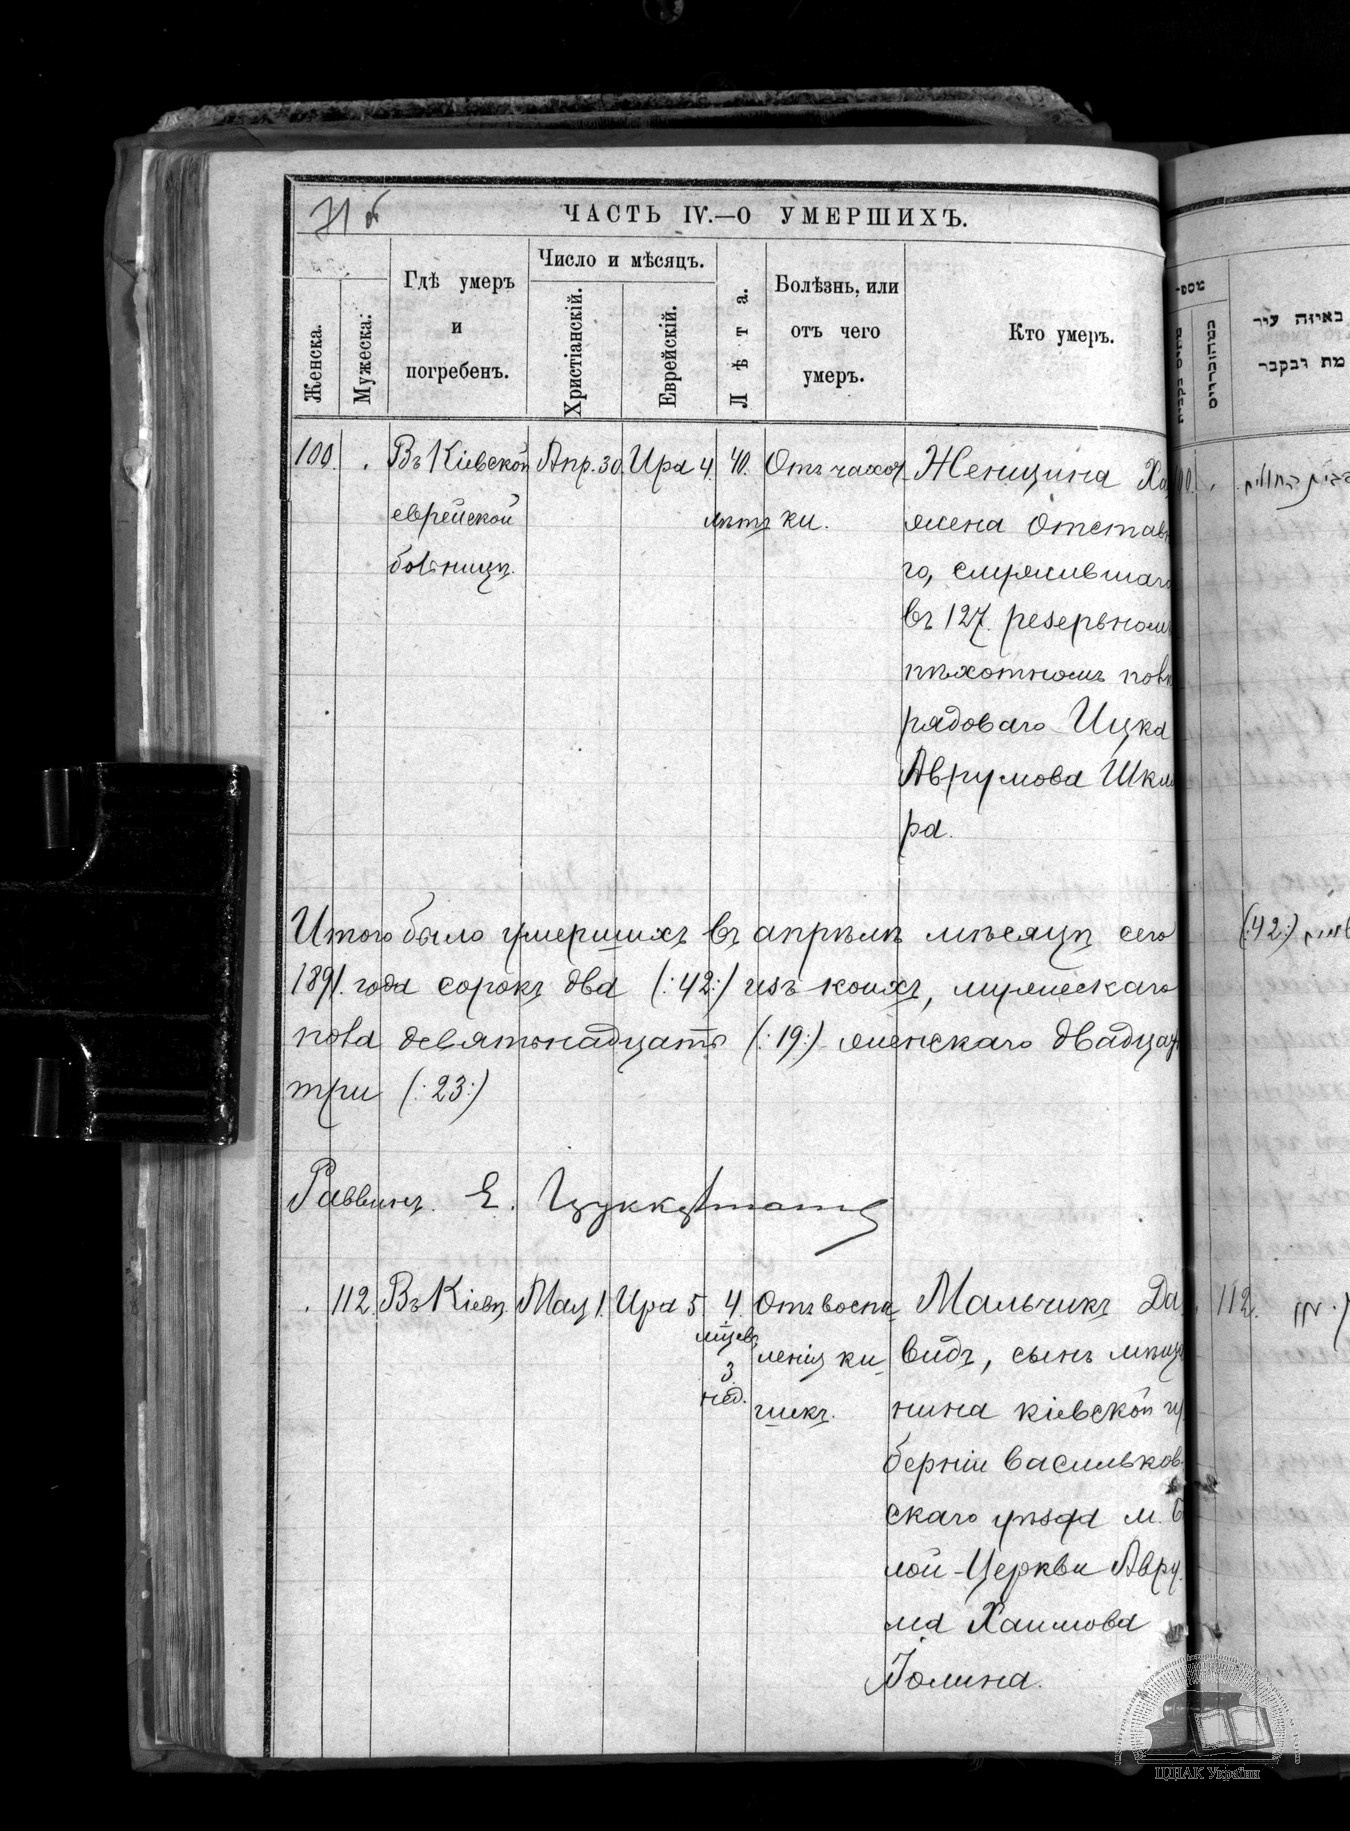 71 об
ЧАСТЬ IV.—О УМЕРШИХЪ.
Женска.
Мужеска.
Гдѣ умеръ
и
погребенъ.
Число и мѣсяцъ.
Христіанскій.
Еврейскій.
Лѣта.
Болѣзнь, или
отъ чего
умеръ.
Кто умеръ.
100.
Въ Кіевской
еврейской
больницѣ.
Апр. 30
Ира 4.
40.
лѣтъ
Отъ чахот
ки.
Женщина Ха
жена отстав
го, служившаго
въ 127. резервномъ
пѣхотномъ полк
рядоваго Ицка
Аврумова Шкля
ра.
Итого было умершихъ въ апрѣлѣ мѣсяцѣ сего
1891. года сорокъ два (:42:) изъ коихъ, мужескаго
пола девятьнадцать (:19:) женскаго двадцать
три (:23:)
Раввинъ. Е. Цуккерманъ
112.
Въ Кіевѣ
Мая 1.
Ира 5
4.
мѣсяц.
3
нед.
Отъ воспа
ленія ки
шекъ.
Мальчикъ Да
видъ, сынъ мѣща
нина кіевской гу
берніи васильков
скаго уѣзда м. Бѣ
лой-Церкви Авру
ма Хаимова
Голина.
מספר
באיזה עיר
מת ונקבר
100.
(:42:)
112.
ЦДІАК України